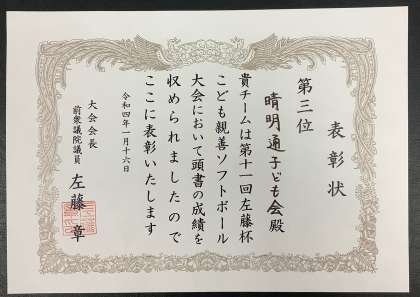 表彰状
第三位
晴明通子ども会殿
貴チームは第十一回左藤杯
こども親善ソフトボール
大会において頭書の成績を
収められましたので
ここに表彰いたします
令和四年一月十六日
大会会長
前衆議院議員 左藤章